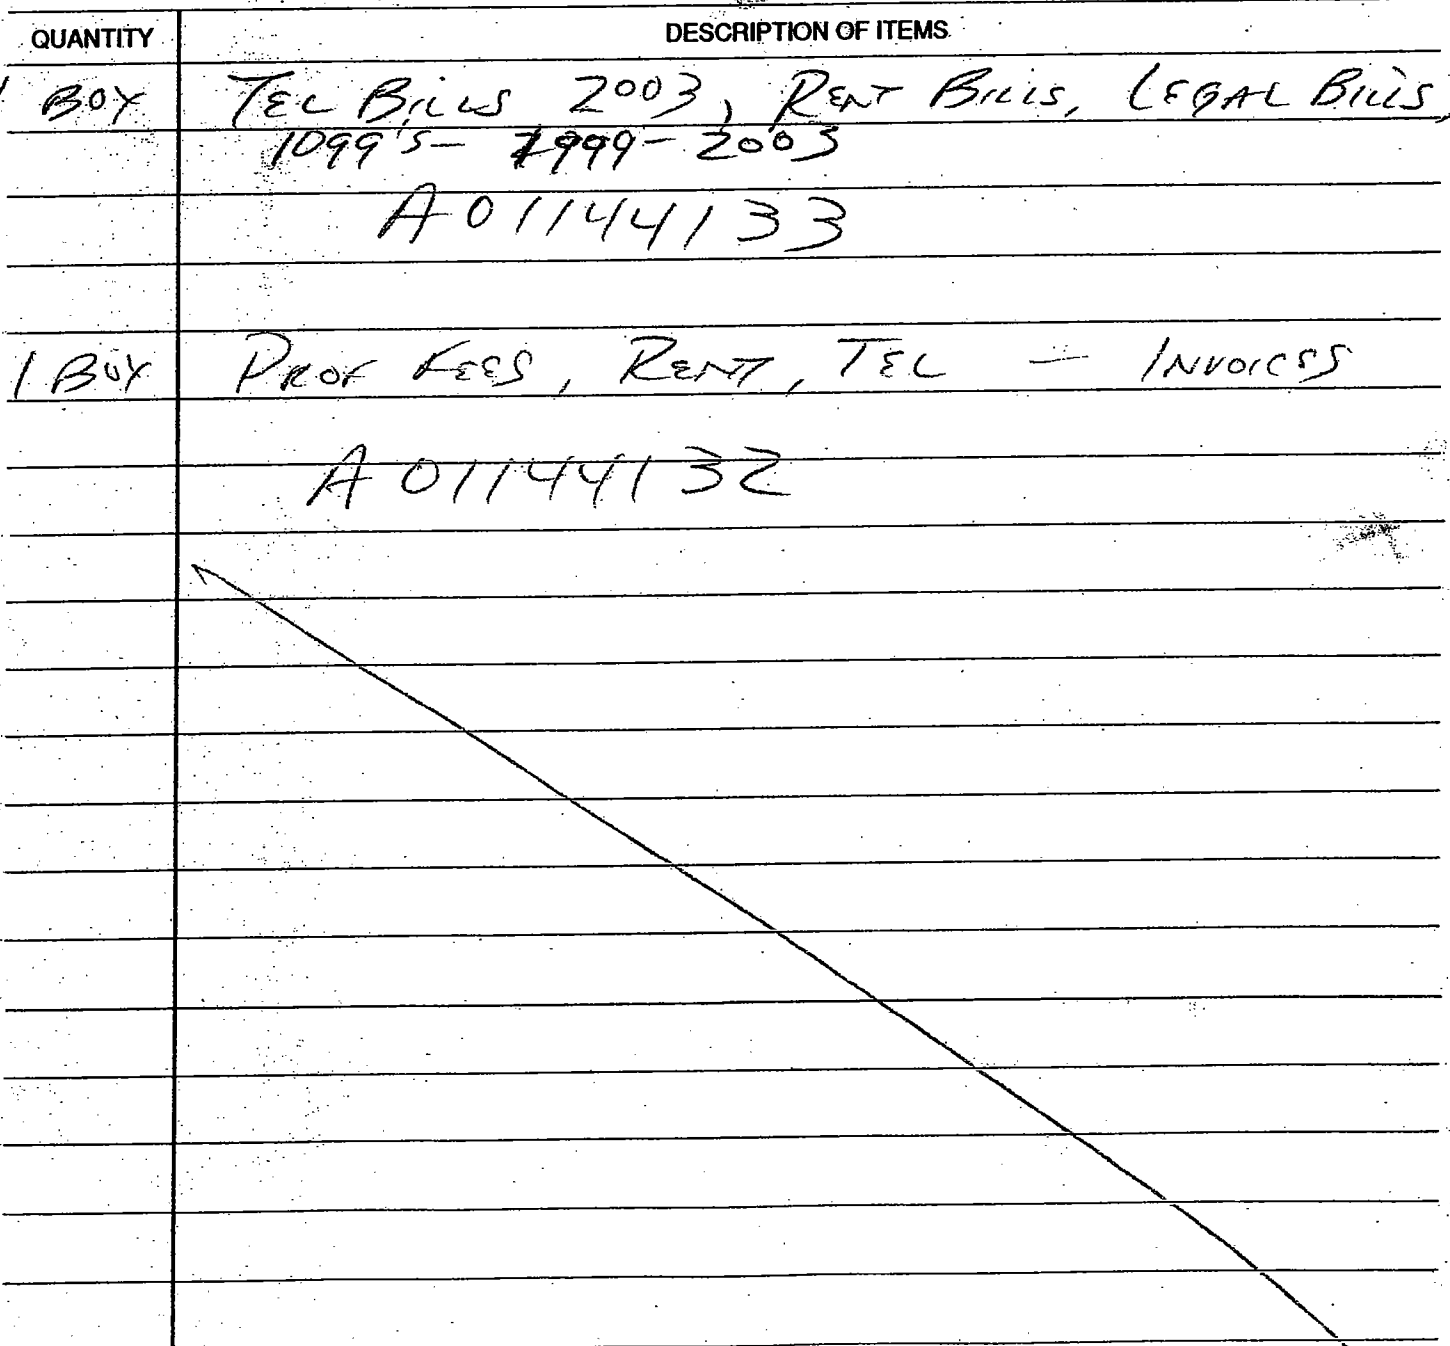 QUANTITY DESCRIPTION OF ITEMS
1 BOX TEL BILLS 2003, RENT BILLS, LEGAL BILLS,
1099'S - 1999 - 2003
A01144133
1 BOX PROF FEES, RENT, TEL — INVOICES
A01144132